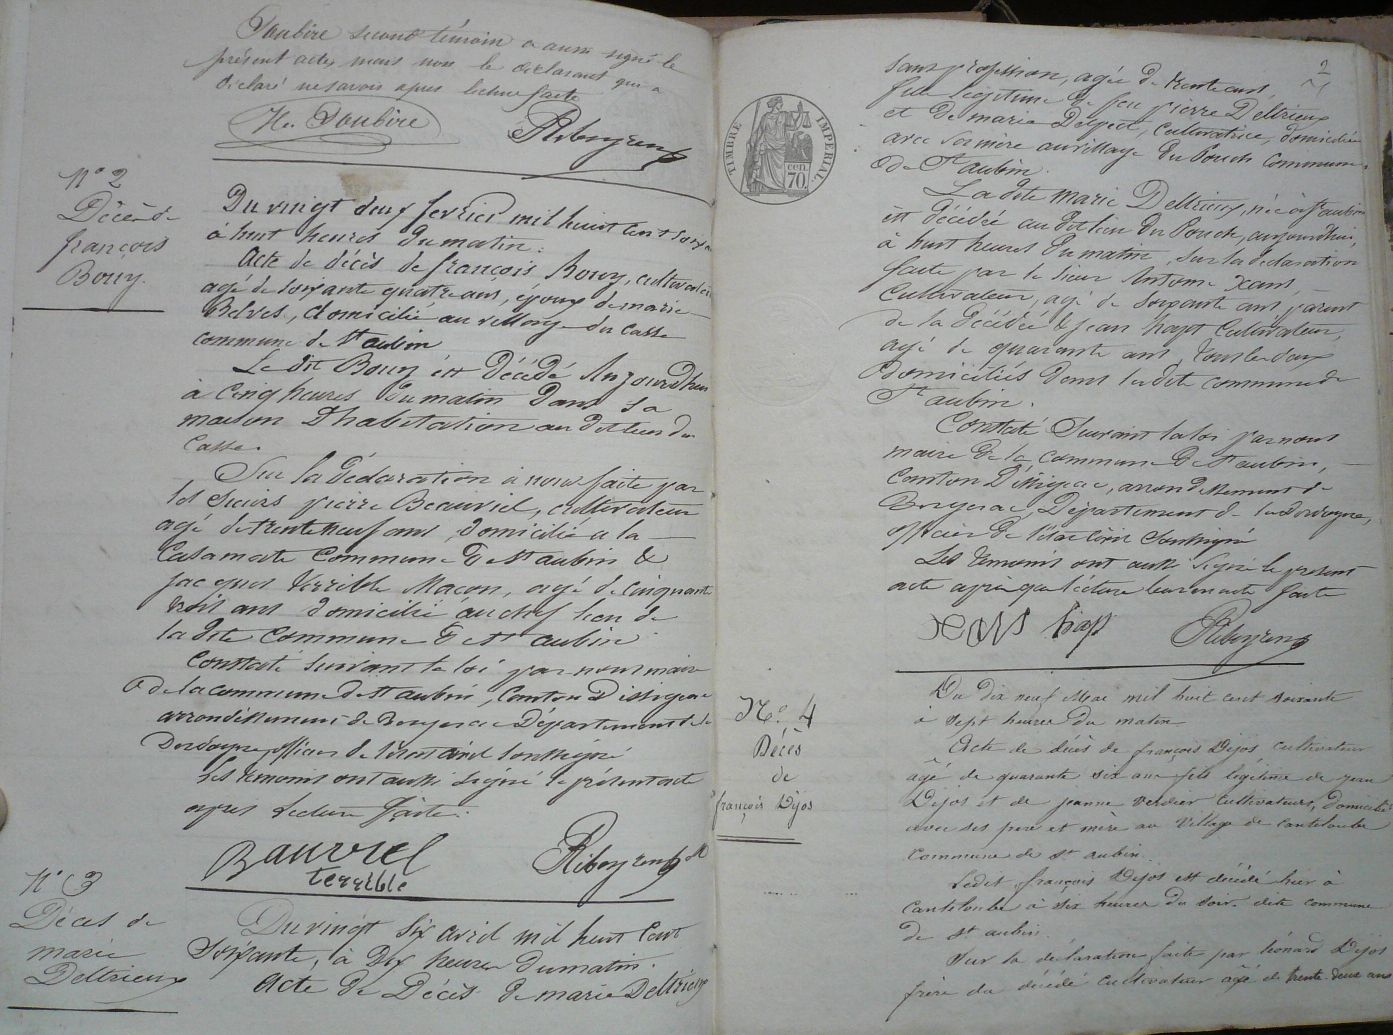 Soubire second témoin a aussi signé le
présent acte, mais non le déclarant qui a
déclaré ne savoir après lecture faite
He. Soubire Riboyreux
N° 2
Décès de
françois
Bouy.
Du vingt deux fevrier mil huit cent soixante
à huit heures du matin.
Acte de décès de françois Bouy, cultivateur
age de soixante quatre ans, époux de marie
Belves, domicilié au village du Casse
commune de St aubin
Le dit Bouy est décédé Aujourdhui
à cinq heures du matin dans sa
maison d'habitation au dit lieu du
Casse.
Sur la déclaration à nous faite par
les sieurs pierre Beauviel, cultivateur
age de trente neuf ans, domicilié a la
Casamate commune de St aubin &
jacques terrible Macon, agé de cinquante
trois ans domicilié au chef lieu de
la dite commune de St aubin
Constaté suivant la loi par nous maire
de la commune de St aubin, Canton d'issigeac
arrondissement de Bergerac Département de la
Dordogne officier de l'état civil soussigné
Les temoins ont aussi signé le présent acte
après lecture faite.
Bauviel Riboyreux
terrible
N° 3
Décès de
marie
Deltrieux
Du vingt six avril mil huit cent
soixante, à dix heures du matin.
Acte de Décès de marie Deltrieux
2
sans profession, agée de trente ans,
fille légitime de feu pierre Deltrieux
et de marie Despeot, cultivatrice, domiciliée
avec sa mère au village du Pouch commune
de St aubin.
La dite marie Deltrieux, née à St aubin
est décédée au dit lieu du Pouch, aujourdhui,
à huit heures du matin, sur la déclaration
faite par le sieur Antoine Xans,
cultivateur, agé de soixante ans, parent
de la décédée & jean hapt cultivateur,
agé de quarante ans, tous les deux
domiciliés dans la dite commune de
St aubin.
Constaté suivant la loi par nous
maire de la commune de St aubin,
canton d'issigeac, arrondissement de
Bergerac, Département de la Dordogne,
officier de l'état civil soussigné
Les temoins ont aussi signé le présent
acte après que lecture leur en a été faite
Xans hapt Riboyreux
TIMBRE IMPERIAL
70 cen.
N° 4
Décès
de
françois Dejos
Du dix neuf Mai mil huit cent soixante
à sept heures du matin
Acte de décès de françois Dejos cultivateur
âgé de quarante six ans fils légitime de jean
Dejos et de jeanne verdier cultivateurs, domicilié
avec ses père et mère au village de canteloube
commune de St aubin.
Ledit françois Dejos est décédé hier à
canteloube à six heures du soir. dite commune
de St aubin.
Sur la déclaration faite par léonard Dejos
frère du décédé cultivateur agé de trente deux ans